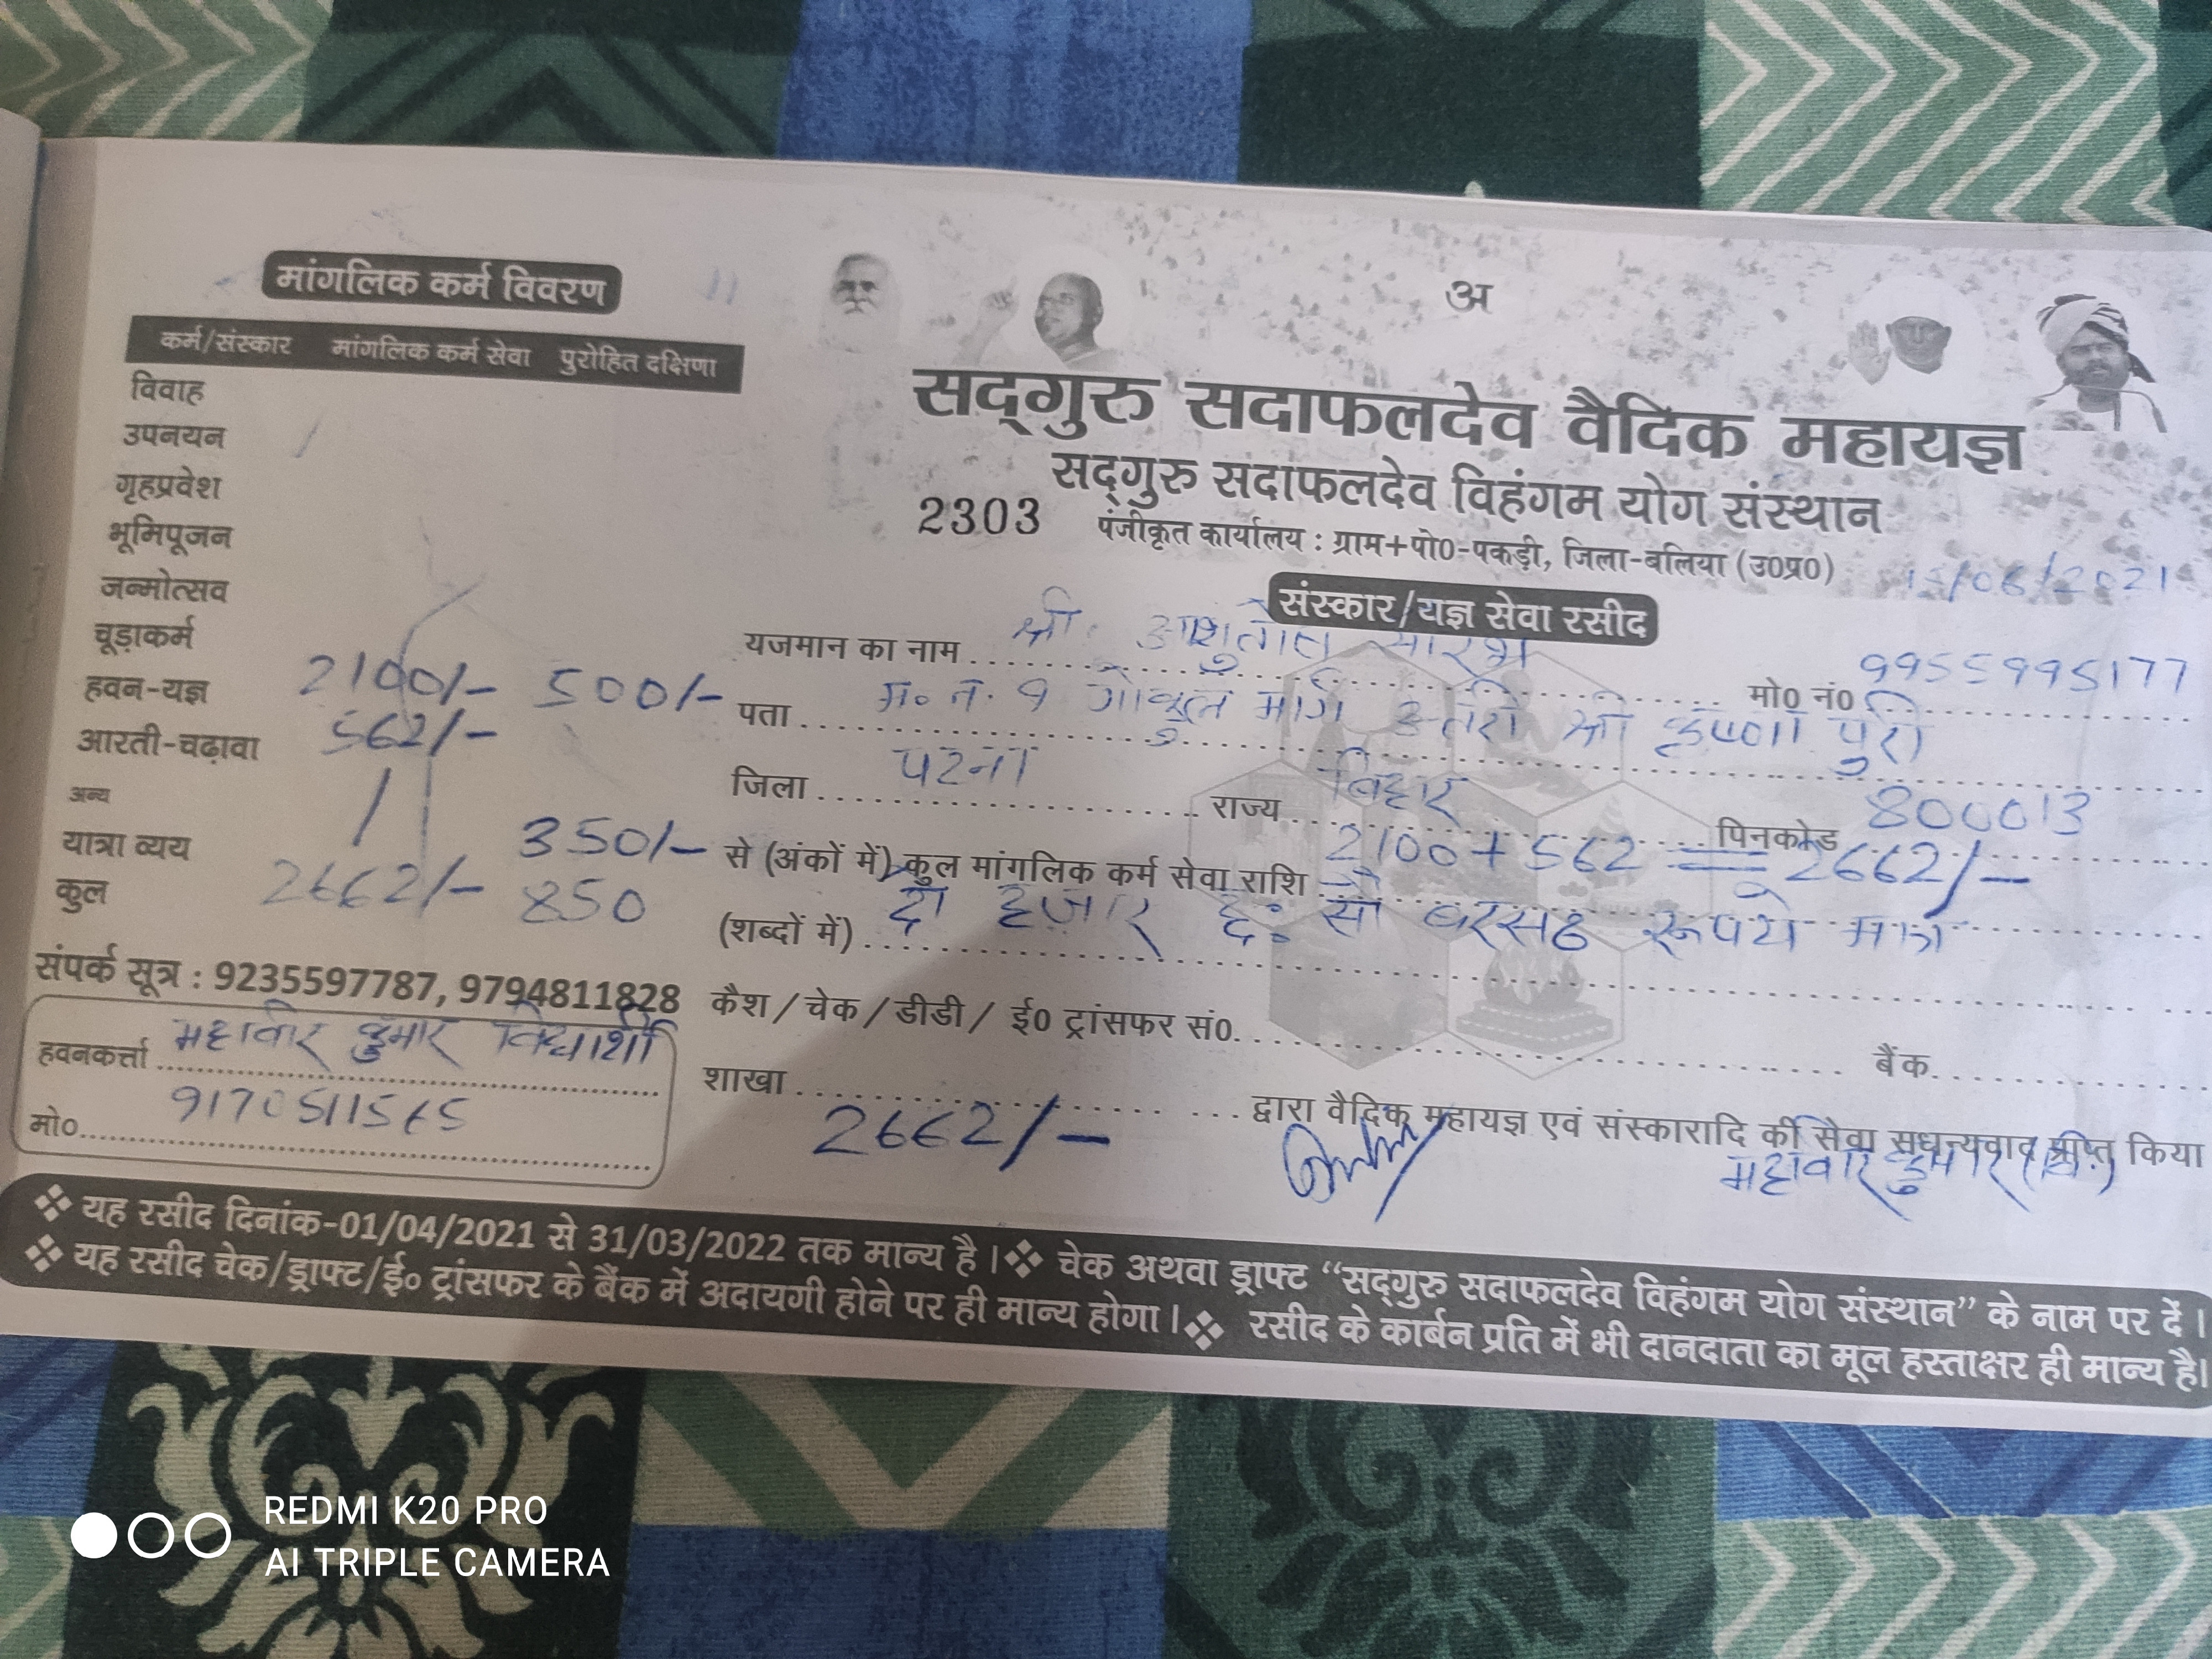 मांगलिक कर्म विवरण
कर्म/संस्कार मांगलिक कर्म सेवा पुरोहित दक्षिणा
विवाह
उपनयन
गृहप्रवेश
भूमिपूजन
जन्मोत्सव
चूड़ाकर्म
हवन-यज्ञ 2100/- 500/-
आरती-चढ़ावा 562/-
अन्य
यात्रा व्यय 350/-
कुल 2662/- 850
संपर्क सूत्र : 9235597787, 9794811828
हवनकर्त्ता महावीर कुमार विद्यार्थी
मो०
अ
सद्गुरु सदाफलदेव वैदिक महायज्ञ
सद्गुरु सदाफलदेव विहंगम योग संस्थान
2303 पंजीकृत कार्यालय : ग्राम+पो0-पकड़ी, जिला-बलिया (उ0प्र0)
/06/2021
संस्कार/यज्ञ सेवा रसीद
यजमान का नाम श्री आशुतोष सौरभ मो0 नं0 9955995177
पता म. न. 9 गोकुल मार्ग उत्तरी श्री कृष्णा पुरी
जिला पटना राज्य बिहार पिनकोड 800013
से (अंकों में) कुल मांगलिक कर्म सेवा राशि 2100 + 562 = 2662/-
(शब्दों में) दो हजार छ: सौ बासठ रूपये मात्र
कैश / चेक / डीडी / ई0 ट्रांसफर सं0 बैंक
शाखा द्वारा वैदिक महायज्ञ एवं संस्कारादि की सेवा सधन्यवाद प्राप्त किया
2662/- महावीर कुमार
❖ यह रसीद दिनांक-01/04/2021 से 31/03/2022 तक मान्य है । ❖ चेक अथवा ड्राफ्ट “सद्गुरु सदाफलदेव विहंगम योग संस्थान” के नाम पर दें ।
❖ यह रसीद चेक/ड्राफ्ट/ई० ट्रांसफर के बैंक में अदायगी होने पर ही मान्य होगा । ❖ रसीद के कार्बन प्रति में भी दानदाता का मूल हस्ताक्षर ही मान्य है।
REDMI K20 PRO
AI TRIPLE CAMERA